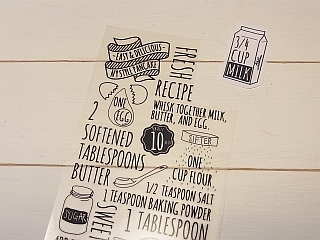 EASY & DELICIOUS
NY STYLE PANCAKE
FRESH
RECIPE
3/4
CUP
MILK
ONE
EGG
WHISK TOGETHER MILK,
BUTTER, AND EGG.
2
SOFTENED
TABLESPOONS
BUTTER
10
SIFTER
ONE
CUP FLOUR
1/2 TEASPOON SALT
1 TEASPOON BAKING POWDER
1 TABLESPOON
SUGAR
SWEET